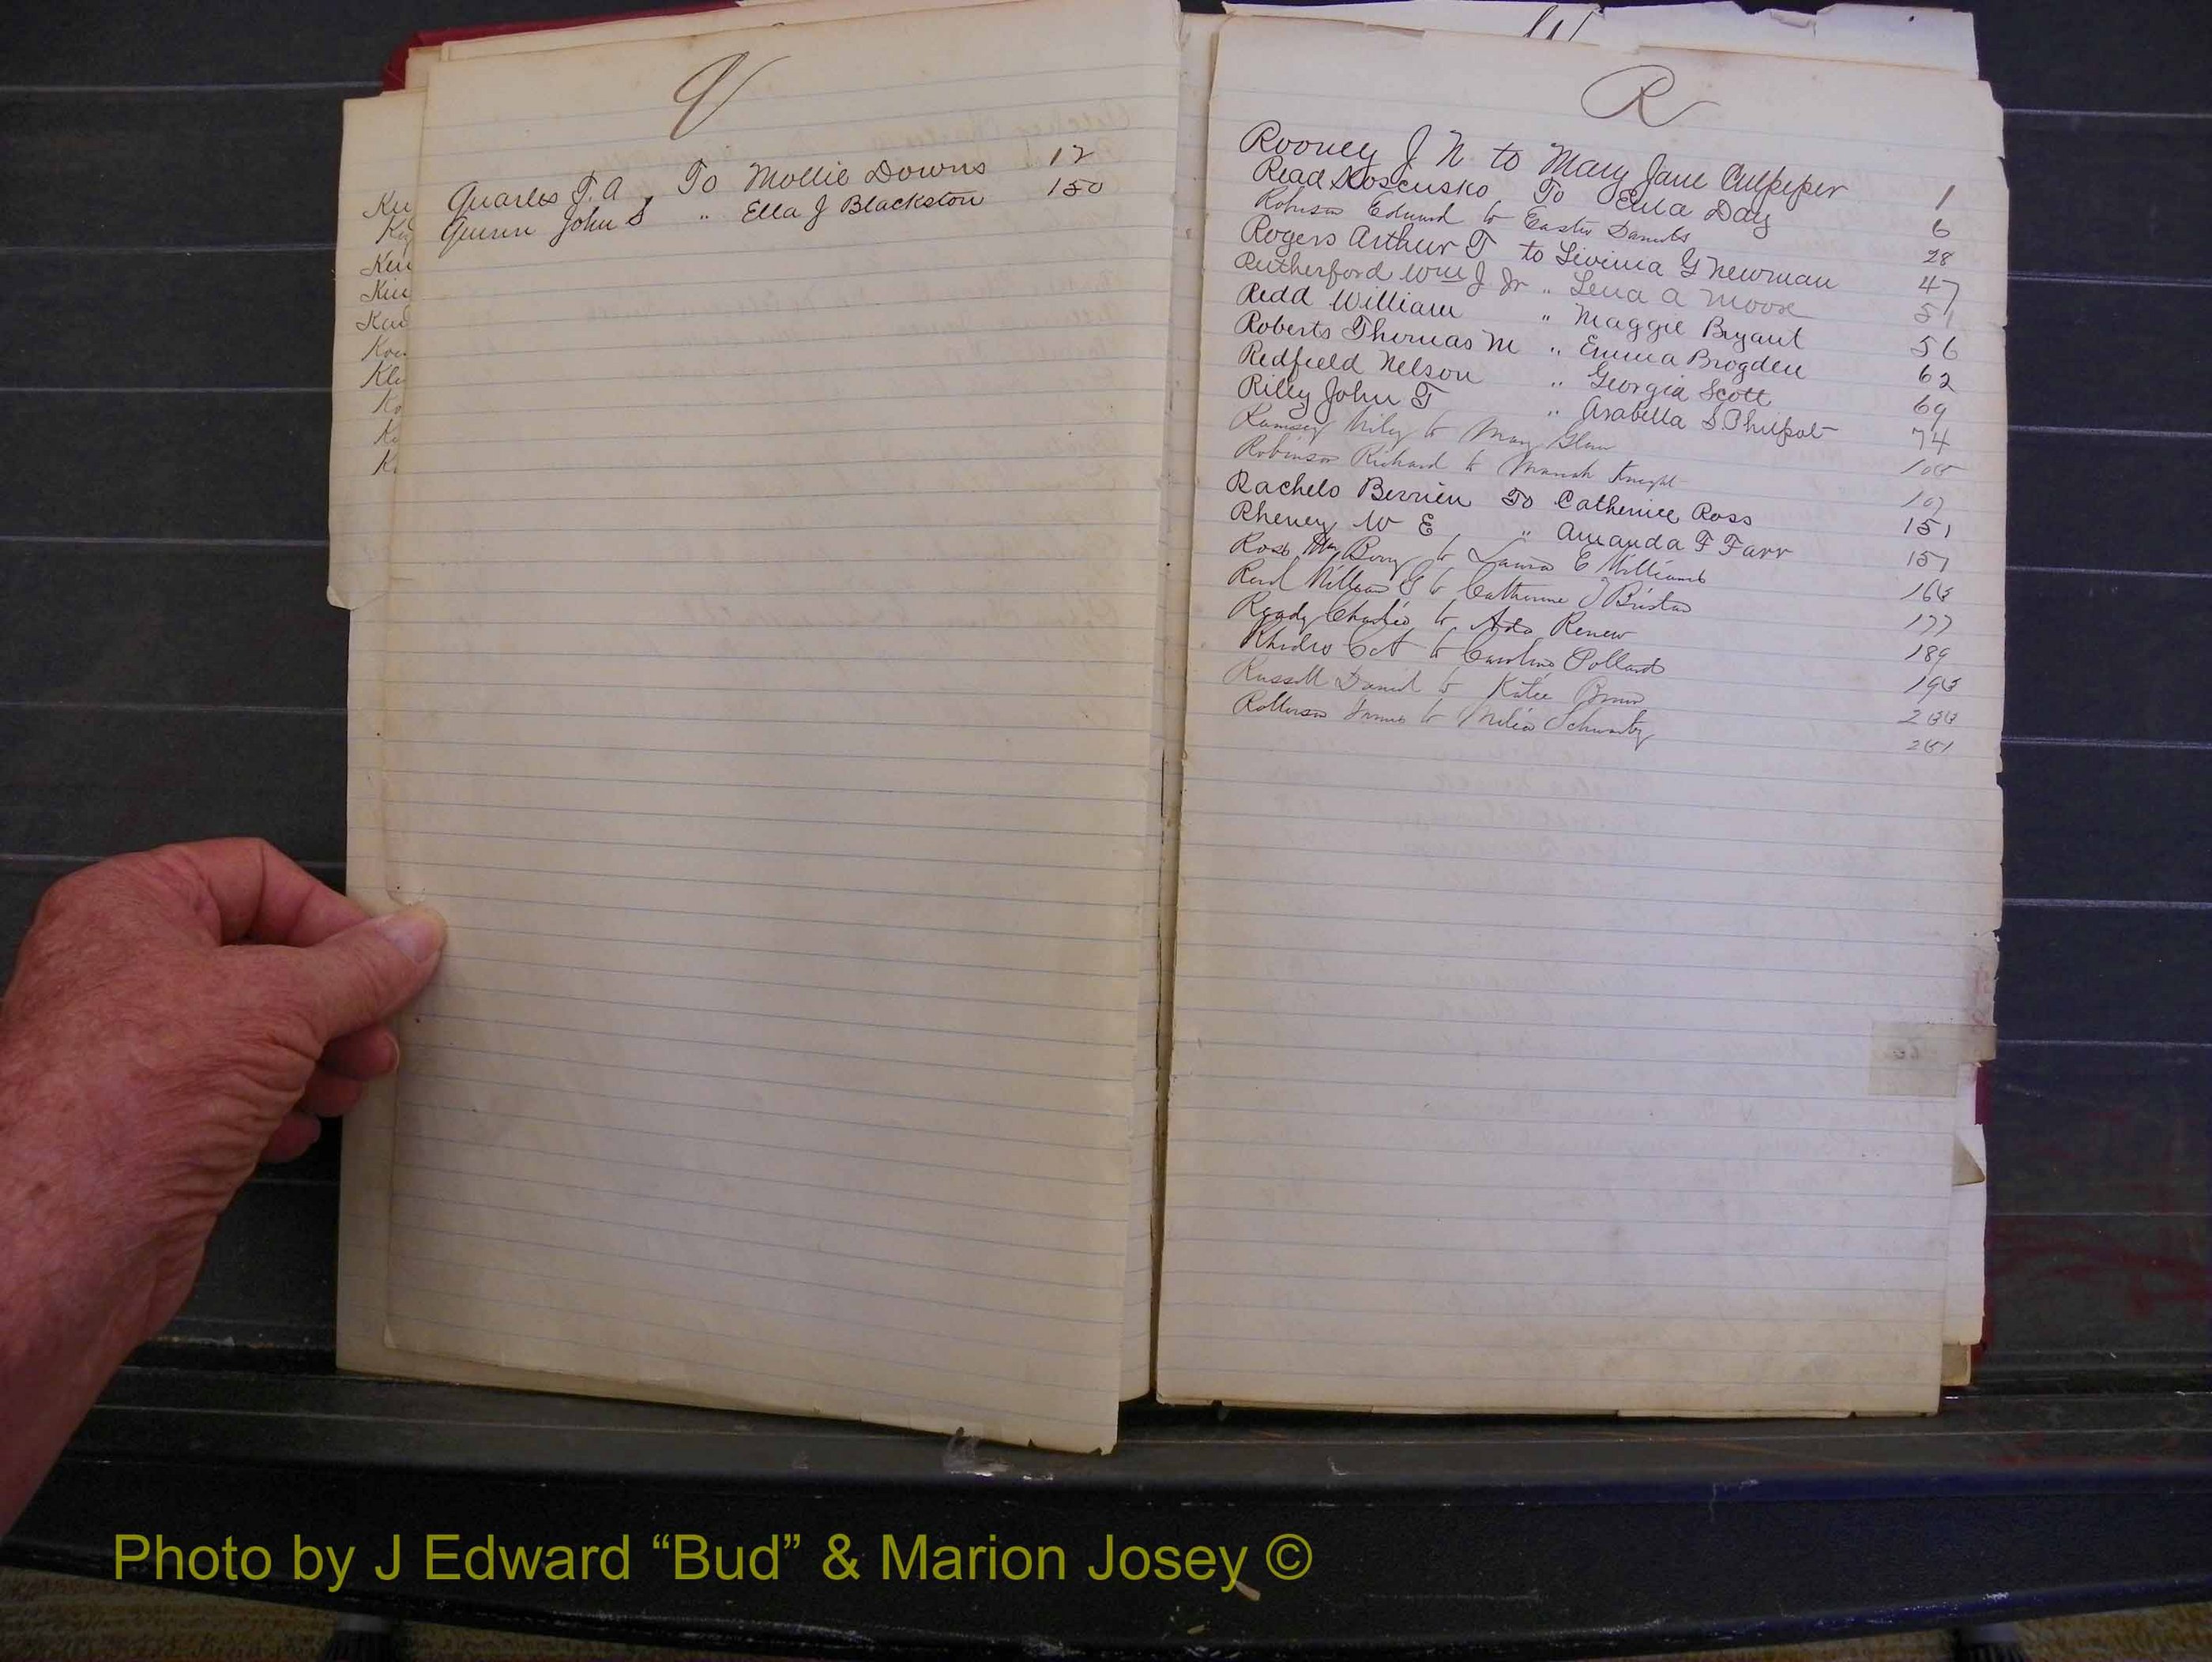 Q
Quarles T. A. To Mollie Downs 12
Quinn John S " Ella J Blackston 150
Ken
Kin
Kle
Ko
R
Rooney J N to Mary Jane Culpeper 1
Read Koscusko To Eula Day 6
Robison Edward to Easter Daniels 28
Rogers Arthur T to Livinia G Newman 47
Rutherford Wm J Jr " Lena A Moore 51
Redd William " Maggie Bryant 56
Roberts Thomas M " Emma Brogden 62
Redfield Nelson " Georgia Scott 69
Rilly John T " Arabella S Philpot 74
Ramsey Wiley to Mary Glenn
Robinson Richard to Knight 107
Rachels Berrien To Catherine Ross 151
Rheney W E " Amanda F Farr 157
Ross Berry to Laura E Williams
William G to Catherine J 177
Ready Charlie to Ada Renew 189
Rhodes to Caroline Pollard
Russell Daniel to Katie Brown
James to Schwartz
Photo by J Edward “Bud” & Marion Josey ©